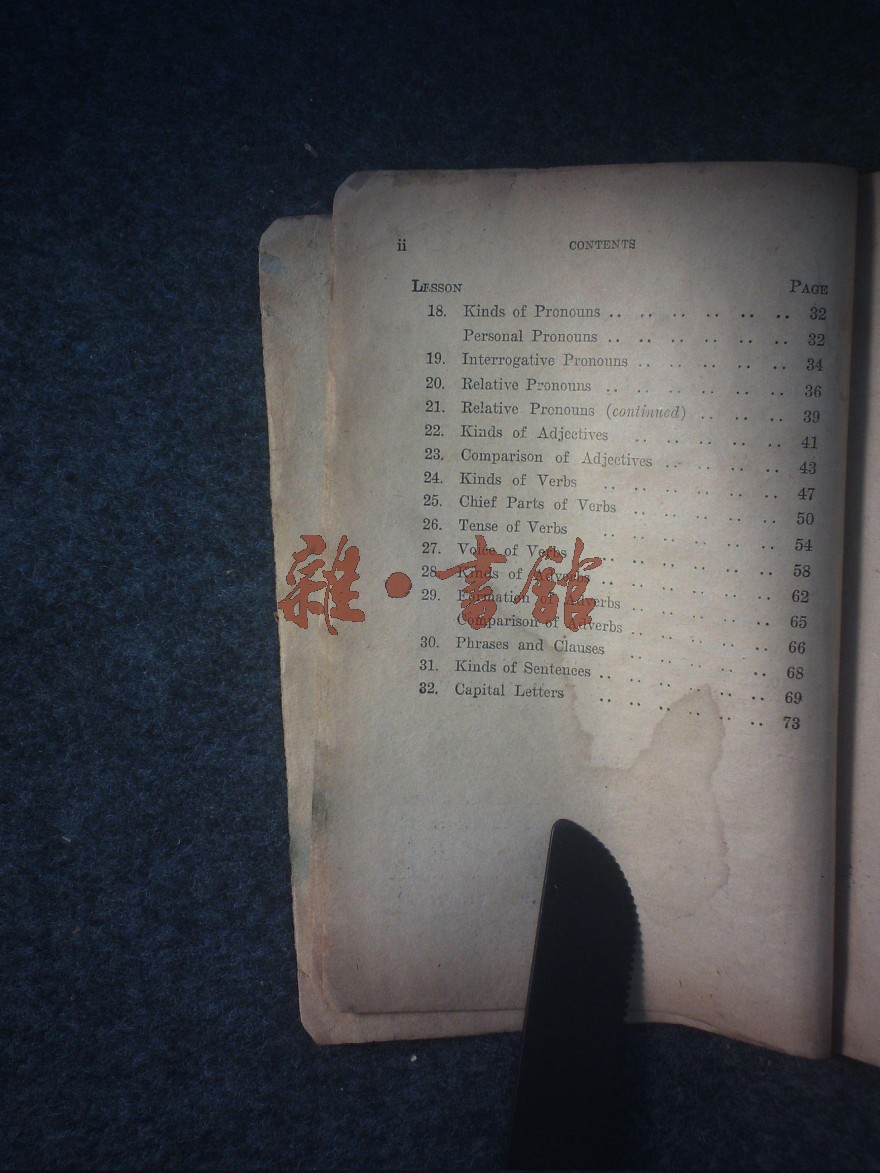 ii CONTENTS
LESSON PAGE
18. Kinds of Pronouns .. .. .. .. .. .. 32
Personal Pronouns .. .. .. .. .. .. 32
19. Interrogative Pronouns .. .. .. .. .. 34
20. Relative Pronouns .. .. .. .. .. .. 36
21. Relative Pronouns (continued) .. .. .. 39
22. Kinds of Adjectives .. .. .. .. .. 41
23. Comparison of Adjectives .. .. .. .. 43
24. Kinds of Verbs .. .. .. .. .. .. 47
25. Chief Parts of Verbs .. .. .. .. .. 50
26. Tense of Verbs .. .. .. .. .. .. 54
27. Voice of Verbs .. .. .. .. .. .. 58
28. Kinds of Adverbs .. .. .. .. .. .. 62
29. Formation of Adverbs .. .. .. .. .. 65
Comparison of Adverbs .. .. .. .. .. 66
30. Phrases and Clauses .. .. .. .. .. 68
31. Kinds of Sentences .. .. .. .. .. .. 69
32. Capital Letters .. .. .. .. .. .. 73
雜·書館